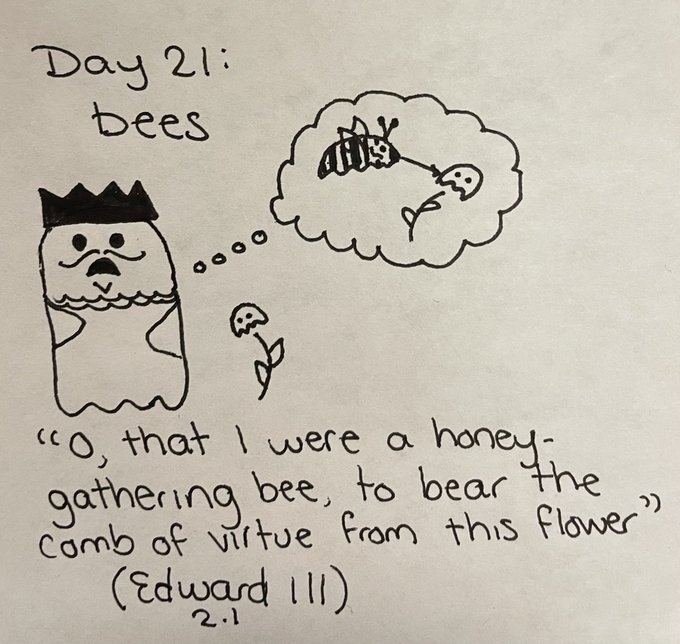 Day 21:
bees
"O, that I were a honey-
gathering bee, to bear the
comb of virtue from this flower"
(Edward III)
2.1